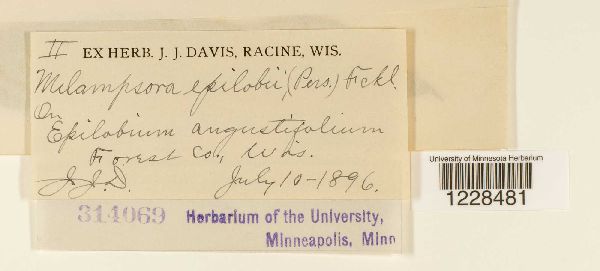 II EX HERB. J. J. DAVIS, RACINE, WIS.
Melampsora epilobii (Pers.) Fckl.
On
Epilobium angustifolium
Forest Co., Wis.
J.J.D. July 10-1896.
314069 Herbarium of the University,
Minneapolis, Minn
University of Minnesota Herbarium
1228481